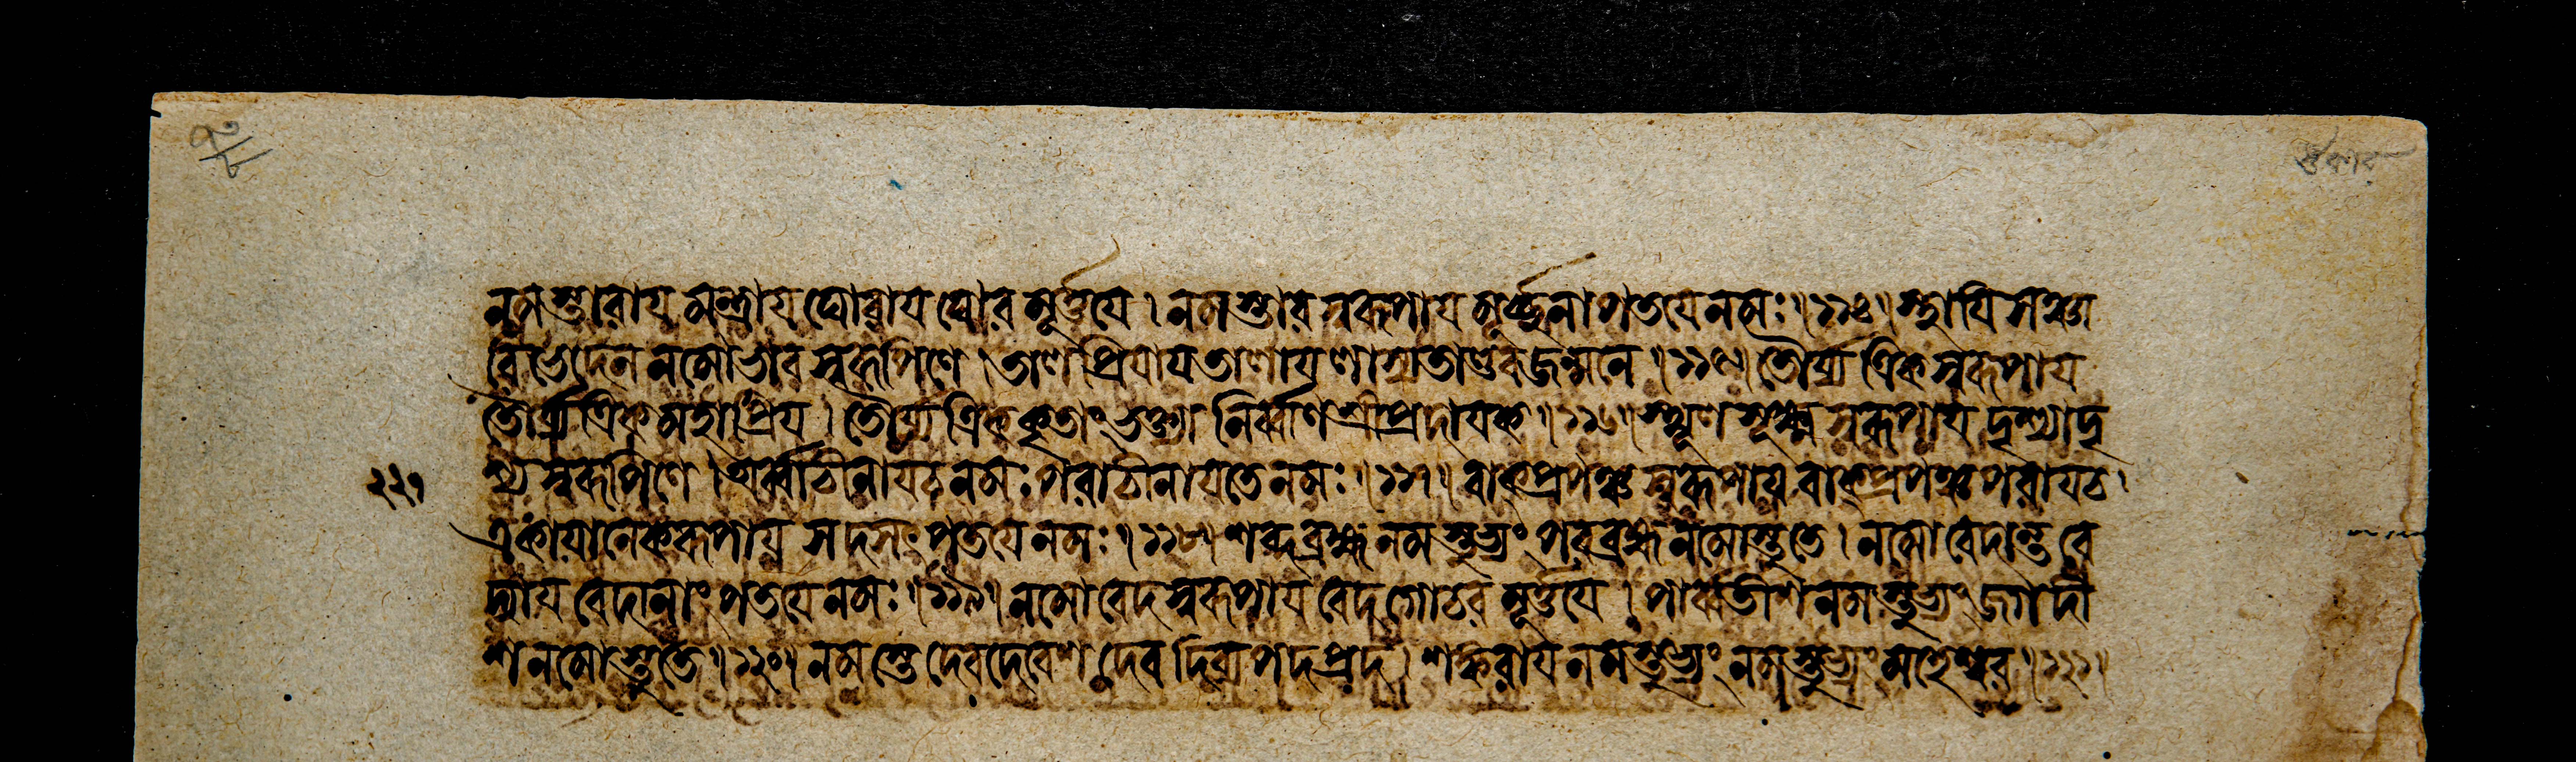 নমস্তারায মন্দ্রায ঘোরায ঘোরমূর্ত্তযে। নমস্তারস্বরূপায মূর্চ্ছনাপতযে নমঃ॥১১৪॥ স্থাযিসঞ্চা
রিভেদেন নমোভাবস্বরূপিণে। তালপ্রিযায তালায লাস্যতাণ্ডবজন্মনে॥১১৫॥ তৌর্য্যত্রিকস্বরূপায
তৌর্য্যত্রিকমহাপ্রিয। তৌর্য্যত্রিককৃতাং ভক্ত্যা নির্ব্বাণশ্রীপ্রদাযক॥১১৬॥ স্থূলসূক্ষ্মস্বরূপায দৃশ্যাদৃ
শ্যস্বরূপিণে। অর্ব্বাচীনায চ নমঃ পরাচীনায তে নমঃ॥১১৭॥ বাক্প্রপঞ্চস্বরূপায বাক্প্রপঞ্চপরায চ।
একাযানেকরূপায সদসৎপতযে নমঃ॥১১৮॥ শব্দব্রহ্ম নমস্তুভ্যং পরব্রহ্মন্নমোস্তুতে। নমো বেদান্তবে
দ্যায বেদানাং পতযে নমঃ॥১১৯॥ নমো বেদস্বরূপায বেদগোচরমূর্ত্তযে। পার্ব্বতীশ নমস্তুভ্যং জগদী
শ নমোস্তুতে॥১২০॥ নমস্তে দেবদেবেশ দেবদিব্যপদপ্রদ। শঙ্করায নমস্তুভ্যং নমস্তুভ্যং মহেশ্বর॥১২১॥